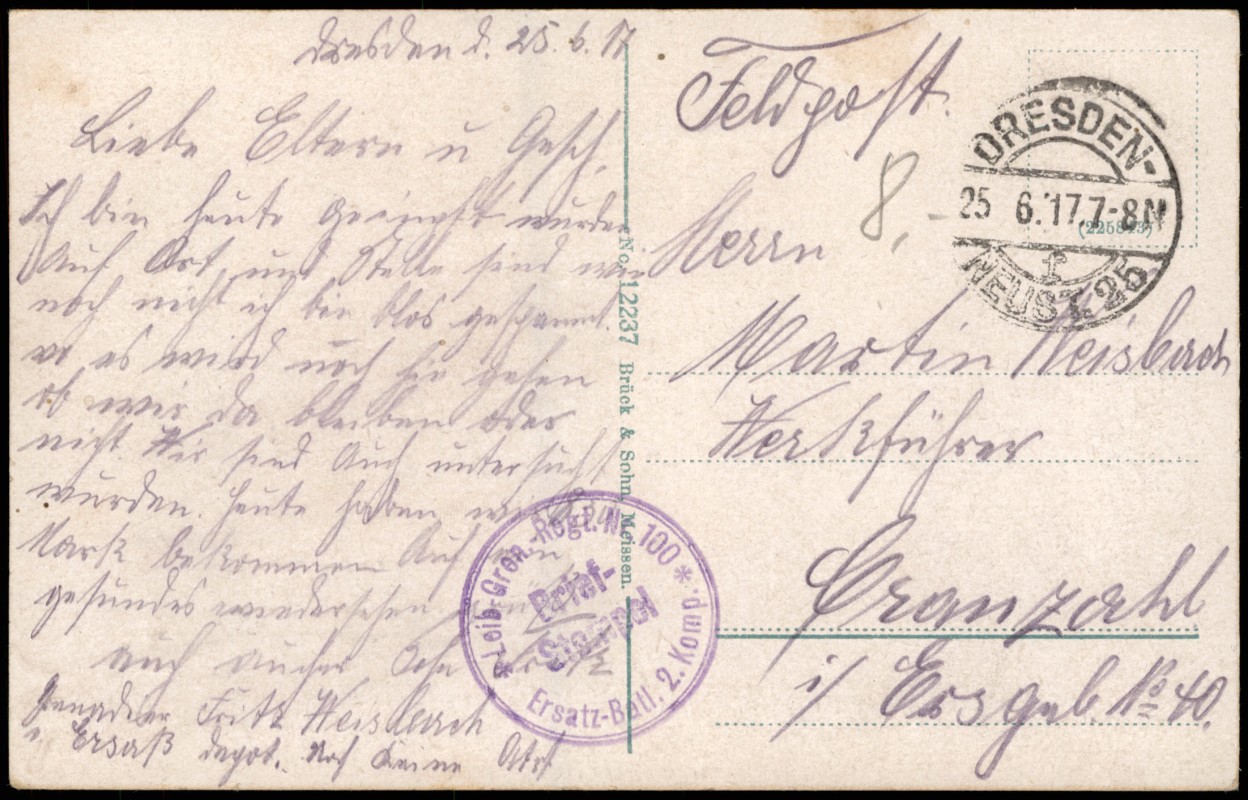 Dresden d. 25.6.17
Liebe Eltern u Gesch.
Ich bin heute geimpft wurden
Auf Ort und Stelle sind wir
noch nicht ich bin blos gespannt
wo es wird noch hin gehen
ob wir da bleiben oder
nicht Wir sind Auch untersucht
wurden. heute haben wir
Mark bekommen Auf ein
gesundes wiedersehen
auch Fritz
Grenadier Fritz Weisbach
Ersaß depot. Noch Keine
No. 12237 Brück & Sohn, Meissen.
* Leib-Gren.-Regt. No. 100 *
Brief-
Stempel
Ersatz-Batl. 2. Komp.
Feldpost.
8,-
DRESDEN-
25 6.17.7-8N
(225843)
f
NEUST. 25
Herrn
Martin Weisbach
Werkführer
Cranzahl
i/ Erzgeb. No 40.